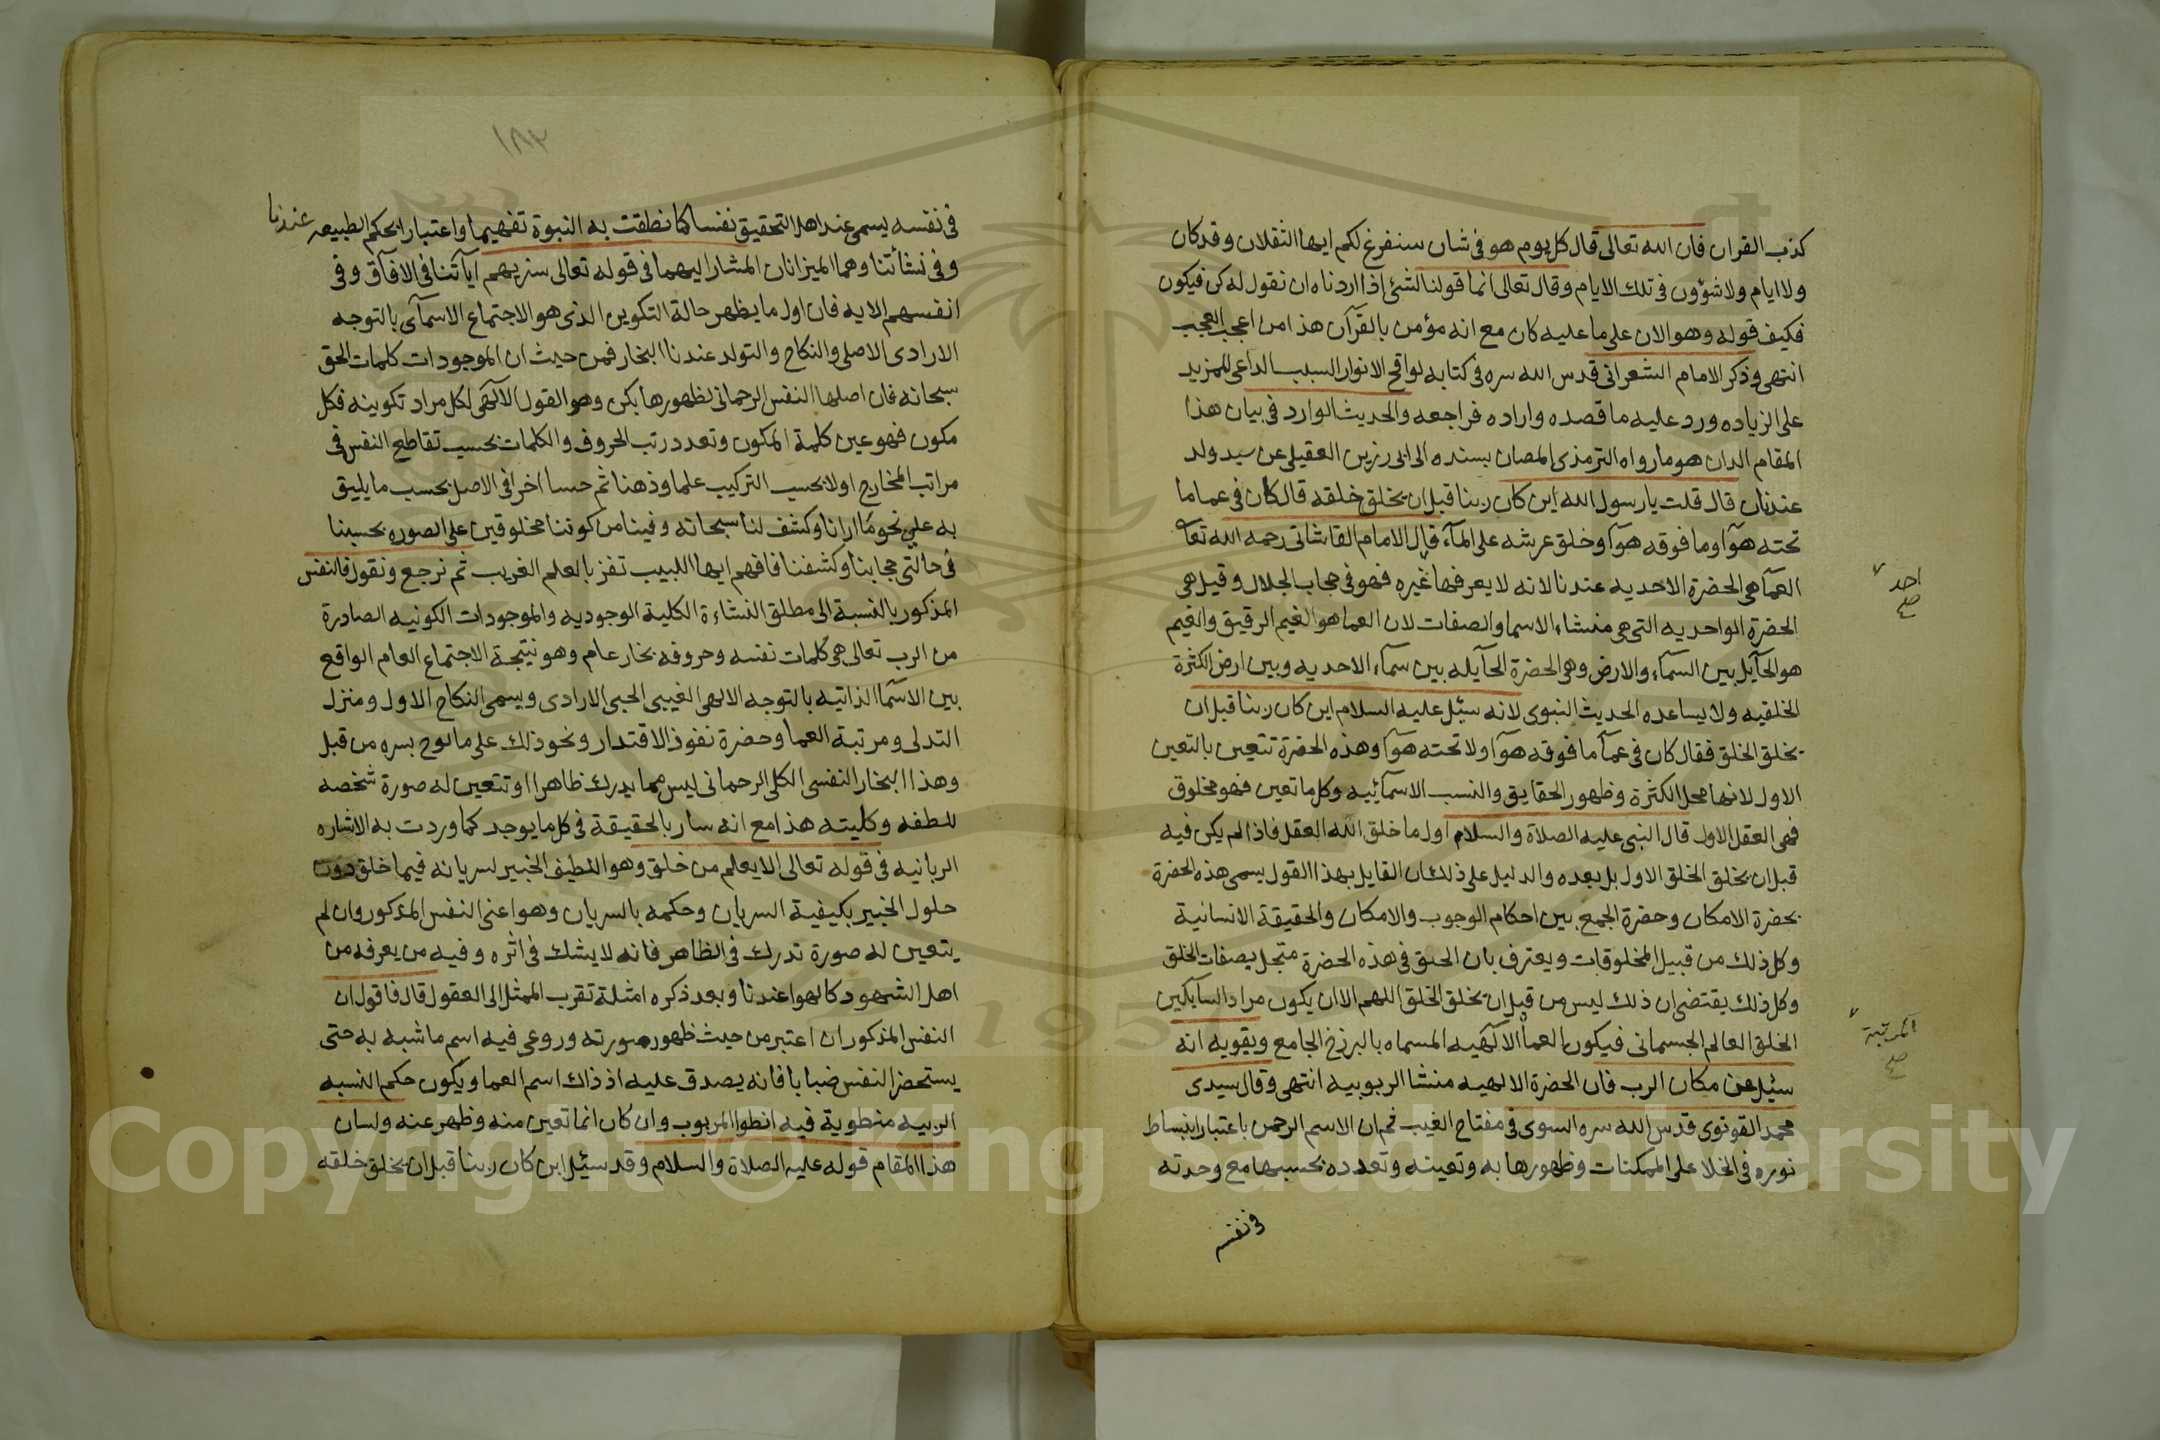 كذب القران فان الله تعالى قال كل يوم هو فى شان سنفرغ لكم ايها الثقلان وقد كان
ولا ايام ولا شؤون فى تلك الايام وقال تعالى انما قولنا لشئ اذا اردناه ان نقول له كن فيكون
فكيف قوله وهو الان على ما عليه كان مع انه مؤمن بالقرآن هذا من اعجب العجب
انتهى وذكر الامام الشعرانى قدس الله سره فى كتابه لواقح الانوار السبب الداعى للمزيد
على الزياده ورد عليه ما قصده واراده فراجعه والحديث الوارد فى بيان هذا
المقام الدان هو ما رواه الترمذى المصان بسنده الى ابى رزين العقيلى عن سيد ولد
عدنان قال قلت يا رسول الله اين كان ربنا قبل ان يخلق خلقه قال كان فى عما ما
تحته هوآ وما فوقه هوآ وخلق عرشه على المآء قال الامام القاشانى رحمه الله تعا
العمآ هى الحضرة الاحديه عندنا لانه لا يعرفها غيره فهو فى حجاب الجلال وقيل هى
احد
صح
الحضرة الواحديه التى هى منشاء الاسما والصفات لان العما هو الغيم الرقيق والغيم
هو الحآيل بين السمآء والارض وهى الحضرة الحآيله بين سمآء الاحديه وبين ارض الكثرة
الخلقيه ولا يساعده الحديث النبوى لانه سئل عليه السلام اين كان ربنا قبل ان
يخلق الخلق فقال كان فى عمآ ما فوقه هوآ ولا تحته هوآ وهذه الحضرة تتعين بالتعين
الاول لانها محل الكثرة وظهور الحقايق والنسب الاسمآئيه وكل ما تعين فهو مخلوق
فهى العقل الاول قال النبى عليه الصلاة والسلام اول ما خلق الله العقل فاذا لم يكن فيه
قبل ان يخلق الخلق الاول بل بعده والدليل على ذلك ان القايل بهذا القول يسمى هذه الحضرة
بحضرة الامكان وحضرة الجمع بين احكام الوجوب والامكان والحقيقة الانسانية
وكل ذلك من قبيل المخلوقات ويعترف بان الحق فى هذه الحضرة متجل بصفات الخلق
وكل ذلك يقتضى ان ذلك ليس من قبل ان يخلق الخلق اللهم الا ان يكون مراد السآيلين
الخلق العالم الجسمانى فيكون العمآ الالٓهيه المسماه بالبرزخ الجامع ويقويه انه
المرتبة
صح
سئل عن مكان الرب فان الحضرة الالهيه منشا الربوبيه انتهى وقال سيدى
محمد القونوى قدس الله سره السوى فى مفتاح الغيب ثم ان الاسم الرحمن باعتبار انبساط
نوره فى الخلا على الممكنات وظهورها به وتعينه وتعدده بحسبها مع وحدته
فى نفسه
١٨٢
فى نفسه يسمى عند اهل التحقيق نفسا كما نطقت به النبوة تفهيما واعتبارا بحكم الطبيعه عندنا
وفى نشأتنا وهما الميزانان المشار اليهما فى قوله تعالى سنريهم ايآتنا فى الافآق وفى
انفسهم الايه فان اول ما يظهر حالة التكوين الذى هو الاجتماع الاسمآى بالتوجه
الارادى الاصلى والنكاح والتولد عندنا البخار فمن حيث ان الموجودات كلمات الحق
سبحانه فان اصلها النفس الرحمانى لظهورها بكن وهو القول الآلهى لكل مراد تكوينه فكل
مكون فهو عين كلمة المكون وتعدد رتب الحروف والكلمات بحسب تقاطع النفس فى
مراتب المخارج اولا بحسب التركيب علما وذهنا ثم حسا اخرا فى الاصل بحسب ما يليق
به على نحو ما ارانا وكشف لنا سبحانه وفينا من كوننا مخلوقين على الصوره بحسبنا
فى حالتى حجابنا وكشفنا فافهم ايها اللبيب تفز بالعلم الغريب ثم نرجع ونقول فالنفس
المذكور بالنسبة الى مطلق النشاءة الكلية الوجوديه والموجودات الكونيه الصادرة
من الرب تعالى هى كلمات نفسه وحروفه بخار عام وهو نتيجة الاجتماع العام الواقع
بين الاسمآ الذاتيه بالتوجه الالهى الغيبى الحبى الارادى ويسمى النكاح الاول ومنزل
التدلى ومرتبة العما وحضرة نفوذ الاقتدار ونحو ذلك على ما لوح بسره من قبل
وهذا البخار النفسى الكلى الرحمانى ليس مما يدرك ظاهرا او تتعين له صورة شخصه
للطفه وكليته هذا مع انه سار بالحقيقة فى كل ما يوجد كما وردت به الاشاره
الربانيه فى قوله تعالى الا يعلم من خلق وهو اللطيف الخبير لسريانه فيما خلق دون
حلول الخبير بكيفية السريان وحكمه بالسريان وهو اعنى النفس المذكور وان لم
يتعين له صورة تدرك فى الظاهر فانه لا يشك فى اثره وفيه من يعرفه من
اهل الشهود كالهوا عندنا وبعد ذكره امثلة تقرب الممثل الى العقول قال فاقول ان
النفس المذكور ان اعتبر من حيث ظهور صورته وروعى فيه اسم ما شبه به حتى
يستحضر النفس ضبابا فانه يصدق عليه اذ ذاك اسم العما ويكون حكم النسبه
الربيه منطوية فيه انطوا المربوب وان كان انما تعين منه وظهر عنه ولسان
هذا المقام قوله عليه الصلاة والسلام وقد سئل اين كان ربنا قبل ان يخلق خلقه
Copyright © King Saud University
1957